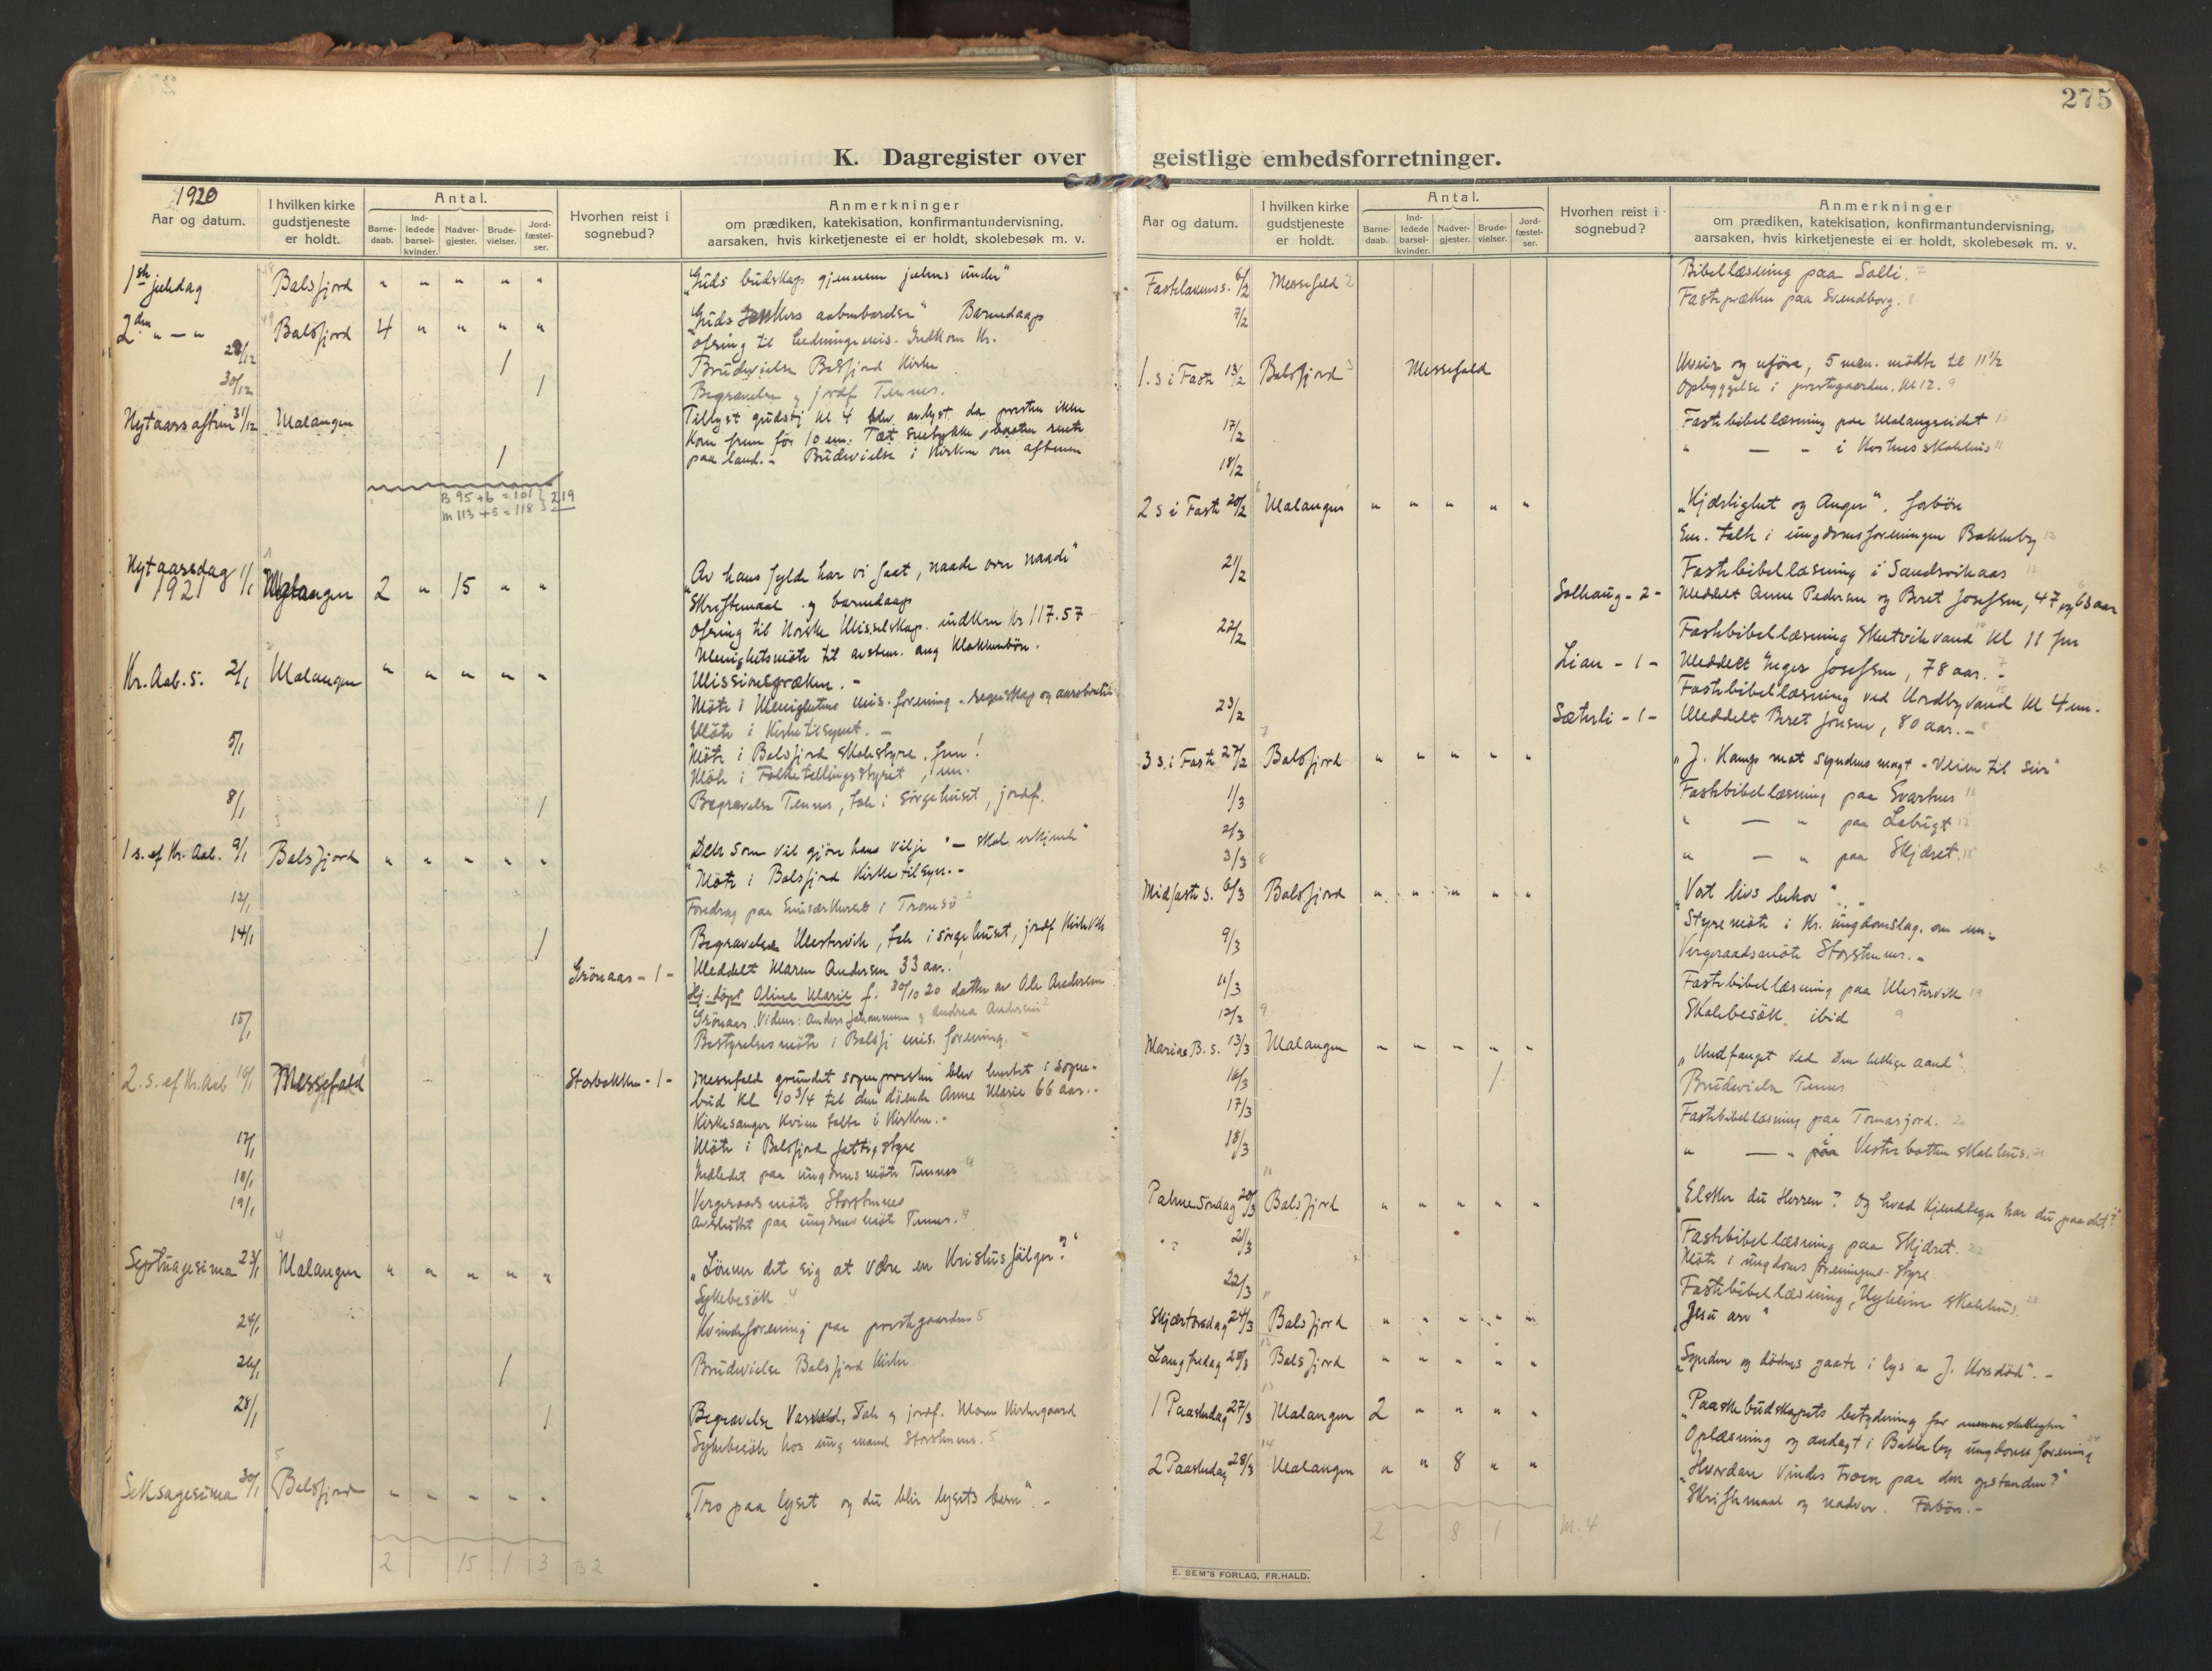 275
K. Dagregister over geistlige embedsforretninger.
1920
Aar og datum.
I hvilken kirke gudstjeneste er holdt.
Antal.
Barne-daab.
Ind-ledede barsel-kvinder.
Nadver-gjester.
Brude-vielser.
Jord-fæstel-ser.
Hvorhen reist i sognebud?
Anmerkninger
om prædiken, katekisation, konfirmantundervisning,
aarsaken, hvis kirketjeneste ei er holdt, skolebesøk m. v.
1ste juledag Balsfjord " " " " " "Guds budskap gjennem julens under"
2den " — " Balsfjord 4 " " " " "Guds aabenbarelse" Barnedaap
ofring til hedningemis. Indkom Kr.
29/12 1 Brudevielse Balsfjord Kirke
30/12 1 Begravelse og jordf Tennes.
Nytaarsaften 31/12 Malangen Tillyst gudstj kl 4 blev avlyst da presten ikke
kom frem før 10 em. Tæt snetykke,
1 paa land. - Brudevielse i Kirken om aftenen
B 95 + 6 = 101 } 219
M 113 + 5 = 118
Nytaarsdag 1/1 1921 Malangen 2 " 15 " " "Av hans fylde har vi faat, naade over naade"
Skriftemaal og barnedaap
Ofring til Norske Misselskap. indkom Kr 117.57
Menighetsmøte til avstem. ang
Kr. Aab. S. 2/1 Malangen " " " " " Missionspræken. -
Møte i Menighetens mis. forening - regnskap og
Møte i Kirketilsynet. -
5/1 Møte i Balsfjord Skolestyre. fm!
Møte i Folketellingsstyret, em.
8/1 1 Begravelse Tennes, tale i sørgehuset, jordf.
1 s. ef Kr. Aab. 9/1 Balsfjord " " " " " "Dere som vil gjøre hans vilje" - skal erkjende"
Møte i Balsfjord Kirketilsyn. -
12/1 Foredrag paa i Tromsø 2
14/1 1 Begravelse Mestervik, tale i sørgehuset, jordf
Grønaas - 1 - Meddelt Maren Andersen 33 aar.
Hj. døpt Oline Marie f. 30/10 20 datter av Ole Andersen
Grønaas. Vidner: Anders Johannesen og Andrea Andersen
15/1 Bestyrelsesmøte i Balsfj mis. forening.
2. s. ef Kr. Aab 16/1 Messefald Storbakken - 1 - Messefald grundet sogneprestens blev hentet i sogne-
bud kl 10 3/4 til den døende Anne Marie 66 aar. -
Kirkesanger talte i Kirken. -
17/1 Møte i Balsfjord fattigstyre
18/1 Indledet paa ungdomsmøte Tennes
19/1 Vergeraadsmøte Storstennes
Avsluttet paa ungdomsmøte Tennes. 4
Septuagesima 23/1 Malangen " " " " " "Lønner det sig at være en Kristusfølger?"
Sykebesøk 4
24/1 Kvindeforening paa prestegaarden 5
26/1 1 Brudevielse Balsfjord Kirke
28/1 1 Begravelse Tale og jordf. Kirkegaard
Sykebesøk hos ung mand Storstennes. 5
Seksagesima 30/1 Balsfjord " " " " " "Tro paa lyset og du blir lysets barn". -
2 15 1 3 B 2
Aar og datum.
I hvilken kirke gudstjeneste er holdt.
Antal.
Barne-daab.
Ind-ledede barsel-kvinder.
Nadver-gjester.
Brude-vielser.
Jord-fæstel-ser.
Hvorhen reist i sognebud?
Anmerkninger
om prædiken, katekisation, konfirmantundervisning,
aarsaken, hvis kirketjeneste ei er holdt, skolebesøk m. v.
Fastelavenss. 6/2 Messefald 2 Bibellæsning paa Solli. 7
7/2 Fastepræken paa Svendborg. 8
1. s i Faste 13/2 Balsfjord 3 Messefald Uveir og uføre, 5 møtte til 11 1/2
Opbyggelse i prestegaarden, kl 12. 9
17/2 Fastebibellæsning paa Malangseidet 10
18/2 " — " i skolehus 11
2 s i Faste 20/2 Malangen " " " " " "Kjærlighet og Anger". forbøn
Em. tale i ungdomsforeningen Bakkeby
21/2 Fastebibellæsning i Sandsvikaas
Solhaug - 2 - Meddelt Anne Pedersen og Beret Josefsen, 47 og 63 aar
22/2 Fastebibellæsning Skutvikvand kl 11 fm
Lian - 1 - Meddelt Inger Josefsen, 78 aar. -
23/2 Fastebibellæsning ved Nordbyvand kl 4 em.
Sæterli - 1 - Meddelt Beret Jensen, 80 aar. -
3 s. i Faste 27/2 Balsfjord " " " " " "J. Kamp mot syndens magt - veien til seir"
1/3 Fastebibellæsning paa Svartnes
2/3 " — " paa
3/3 " — " paa Skjæret.
Midfaste s. 6/3 Balsfjord " " " " " "Vort livs behov". -
Styremøte i Kr. ungdomslag. om em.
9/3 Vergeraadsmøte Storstennes. -
11/3 Fastebibellæsning paa Mestervik 19
12/3 Skolebesøk ibid 9
Mariæ B. s. 13/3 Malangen " " " " " "Undfanget ved den hellige aand".
16/3 1 Brudevielse Tennes
17/3 Fastebibellæsning paa Tomasjord. 20
18/3 " — " i Vestrebotten skolehus. 21
Palmesøndag 20/3 Balsfjord " " " " " "Elsker du Herren? Og hvad kjendetegn har du paa det?"
21/3 Fastebibellæsning paa Skjæret. 22
Møte i ungdomsforeningens styre
22/3 Fastebibellæsning, Nyheim skolehus 23
Skjærtorsdag 24/3 Balsfjord " " " " " "Jesu arv"
Langfredag 25/3 Balsfjord " " " " " "Synden og dødens gaate i lys av J. Korsdød". -
1 Paaskedag 27/3 Malangen 2 " " " " "Paaskebudskapets betydning for menneskeslegten"
Oplæsning og andagt i Bakkeby ungdomsforening
2 Paaskedag 28/3 Malangen " " 8 " " "Hvordan vindes troen paa den opstandne?"
Skriftemaal og nadver. Forbøn. -
2 8 1 M. 4
E. SEM'S FORLAG, FR.HALD.